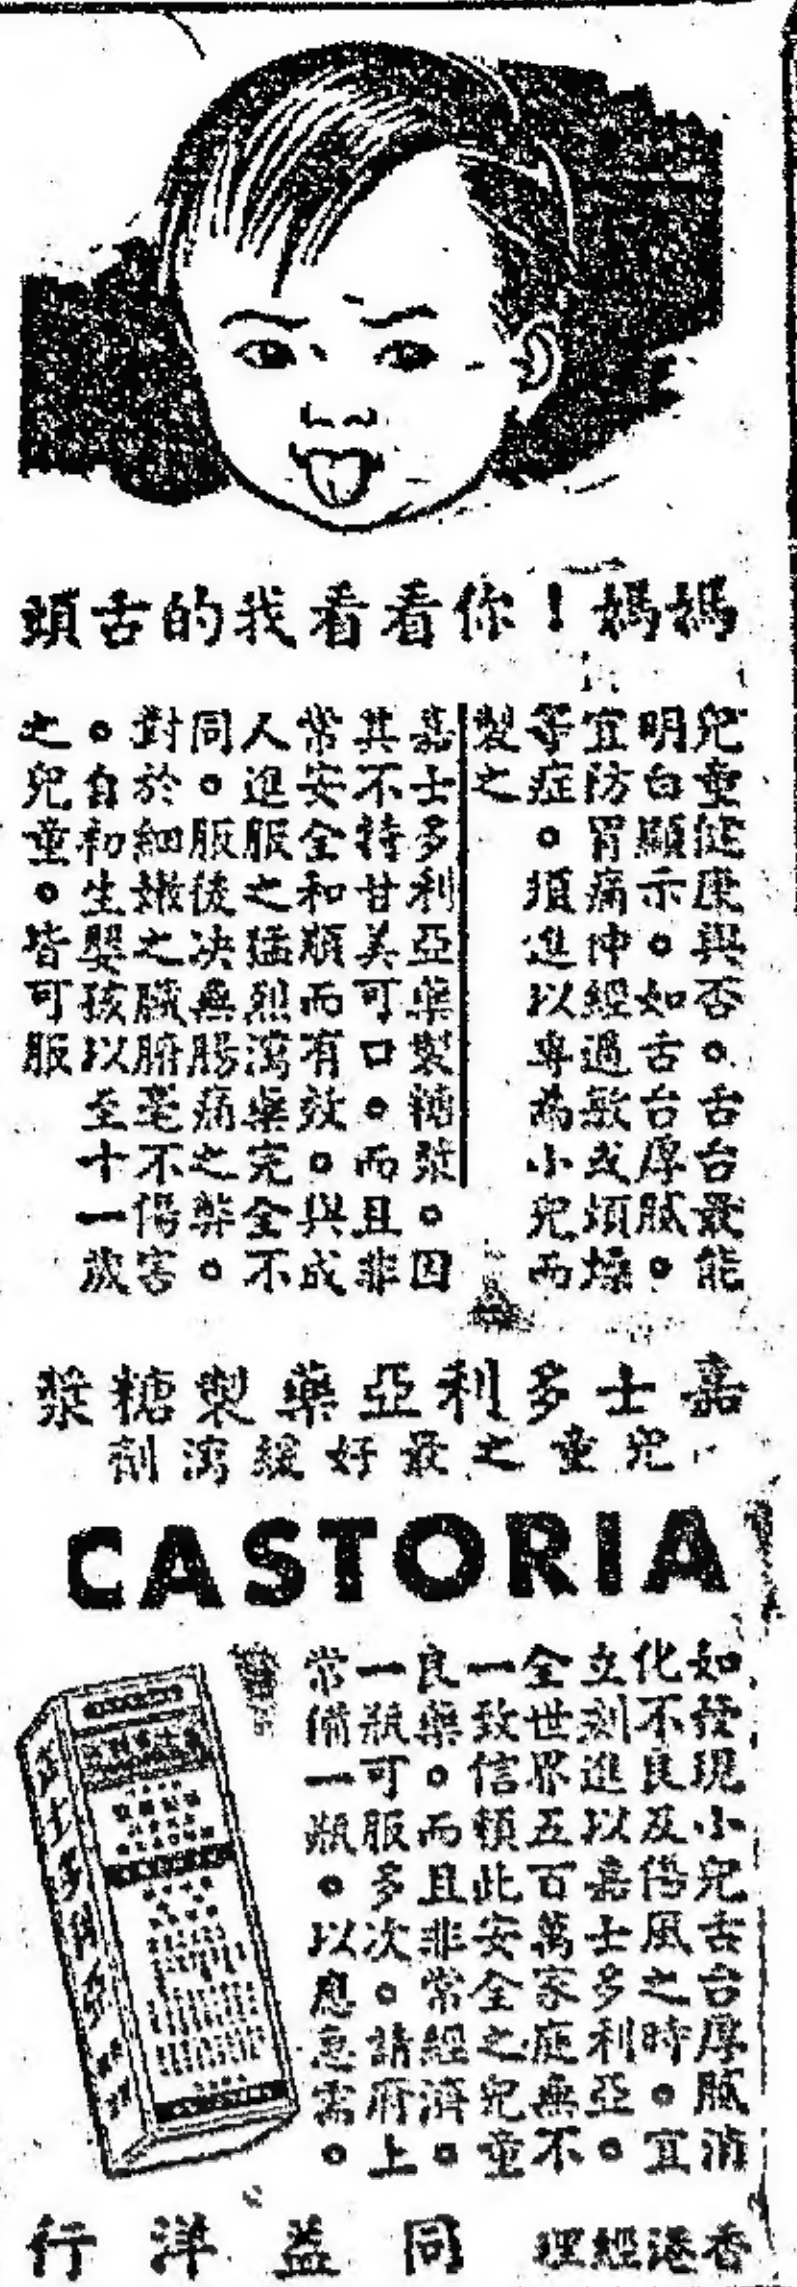 媽媽！你看看我的舌頭
兒童健康與否。舌台最能
明白顯示。如舌台厚膩。
宜防胃痛神經過敏或煩燥
等症。須進以專為小兒而
製之
嘉士多利亞藥製糖漿。因
其不特甘美可口。而且非
常安全和順而有效。與成
人進服之猛烈瀉藥完全不
同。服後决無腸痛之弊。
對於細嫩之臟腑毫不傷害
。自初生嬰孩以至十一歲
之兒童。皆可服
嘉士多利亞藥製糖漿
兒童之最好緩瀉劑
CASTORIA
如發現小兒舌台厚膩消
化不良及傷風之時。宜
立刻進以嘉士多利亞。
全世界五百萬家庭無不
一致信賴此安全之兒童
良藥。而且非常經濟。
一瓶可服多次。請府上
常備一瓶。以應急需。
嘉士多利亞
香港經理 同益洋行